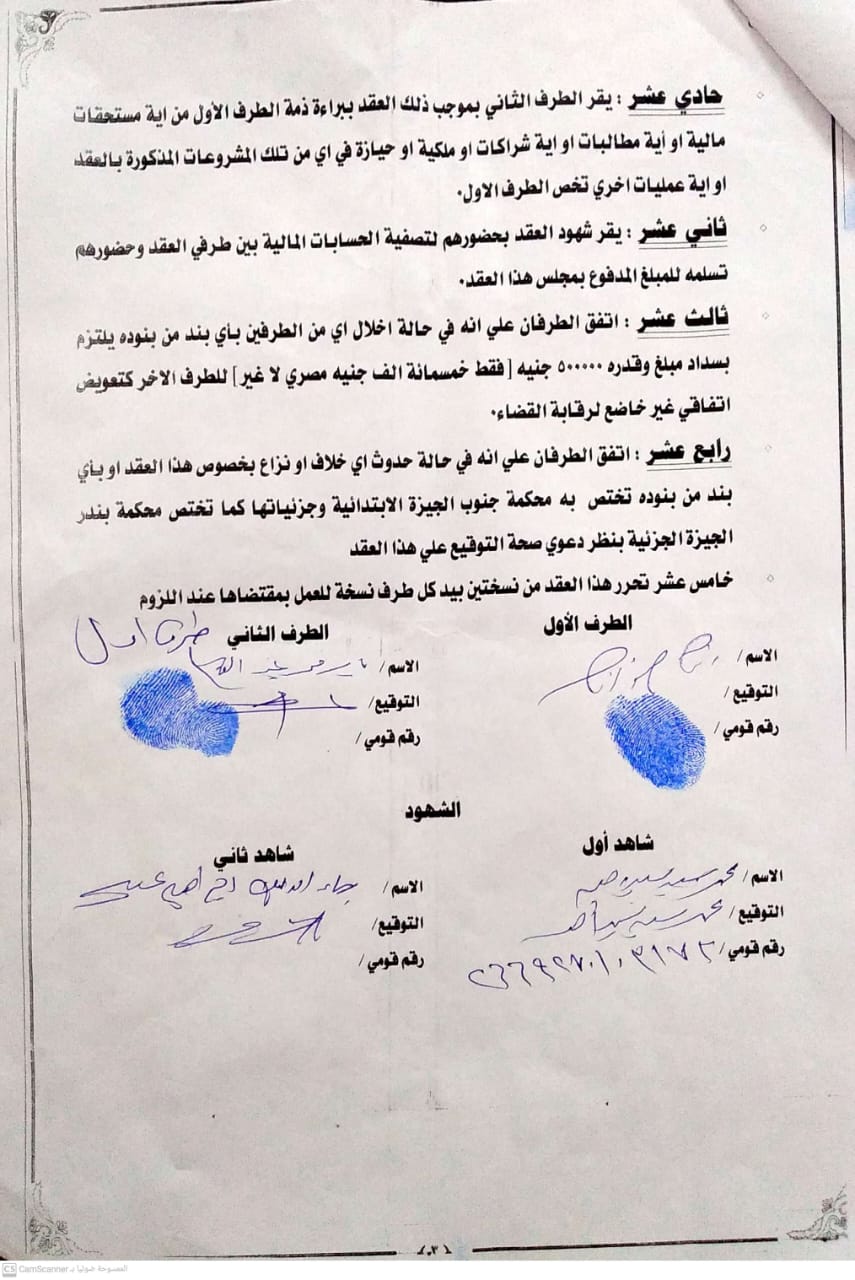 حادي عشر : يقر الطرف الثاني بموجب ذلك العقد ببراءة ذمة الطرف الأول من اية مستحقات
مالية او أية مطالبات او اية شراكات او ملكية او حيازة في اي من تلك المشروعات المذكورة بالعقد
او اية عمليات اخري تخص الطرف الاول.
ثاني عشر : يقر شهود العقد بحضورهم لتصفية الحسابات المالية بين طرفي العقد وحضورهم
تسلمه للمبلغ المدفوع بمجلس هذا العقد.
ثالث عشر : اتفق الطرفان علي انه في حالة اخلال اي من الطرفين بأي بند من بنوده يلتزم
بسداد مبلغ وقدره ٥٠٠٠٠٠ جنيه [ فقط خمسمائة الف جنيه مصري لا غير ] للطرف الاخر كتعويض
اتفاقي غير خاضع لرقابة القضاء.
رابع عشر : اتفق الطرفان علي انه في حالة حدوث اي خلاف او نزاع بخصوص هذا العقد او بأي
بند من بنوده تختص به محكمة جنوب الجيزة الابتدائية وجزئياتها كما تختص محكمة بندر
الجيزة الجزئية بنظر دعوي صحة التوقيع علي هذا العقد
خامس عشر تحرر هذا العقد من نسختين بيد كل طرف نسخة للعمل بمقتضاها عند اللزوم
الطرف الأول
الطرف الثاني طرف اول
الاسم/
التوقيع/
رقم قومي/
الاسم/
التوقيع/
رقم قومي/
الشهود
شاهد أول
شاهد ثاني
الاسم/ محمد سيد
التوقيع/ محمد سيد
رقم قومي/
الاسم/
التوقيع/
رقم قومي/
٣
CS CamScanner الممسوحة ضوئيا بـ